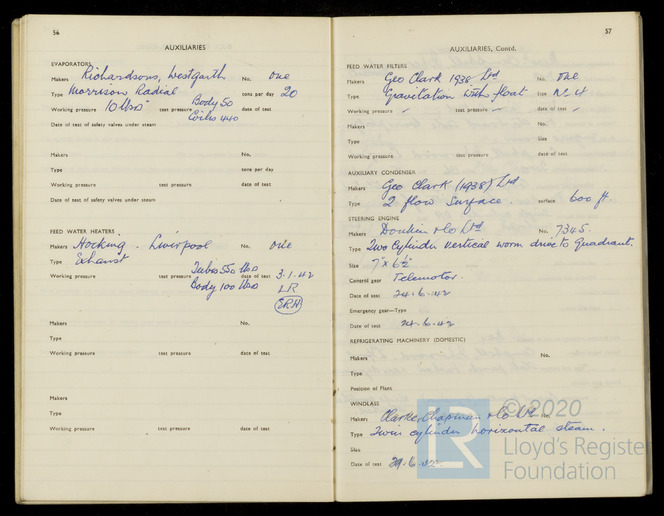 56
AUXILIARIES
EVAPORATORS
Makers Richardsons, Westgarth No. One
Type Morrison Radial tons per day 20
Working pressure 10 lbs" test pressure Body 50 date of test
Coils 440
Date of test of safety valves under steam
Makers No.
Type tons per day
Working pressure test pressure date of test
Date of test of safety valves under steam
FEED WATER HEATERS
Makers Hocking. Liverpool No. One
Type Exhaust
Working pressure test pressure Tubes 550 lbs date of test 3.1.42
Body 100 lbs LR
ERH
Makers No.
Type
Working pressure test pressure date of test
Makers
Type
Working pressure test pressure date of test
57
AUXILIARIES, Contd.
FEED WATER FILTERS
Makers Geo Clark 1938 Ltd No. One
Type Gravitation with float Size No 4
Working pressure test pressure date of test
Makers No.
Type Size
Working pressure test pressure date of test
AUXILIARY CONDENSER
Makers Geo Clark (1938) Ltd
Type 2 flow Surface. surface 600 ft.
STEERING ENGINE
Makers Donkin & Co Ltd No. 7345.
Type Two Cylinder vertical worm drive to Quadrant.
Size 7" x 6½"
Control gear Telemotor.
Date of test 24.6.42
Emergency gear—Type
Date of test 24.6.42
REFRIGERATING MACHINERY (DOMESTIC)
Makers No.
Type
Position of Plant
WINDLASS
Makers Clarke, Chapman & Co Ltd No.
Type Twin cylinder horizontal steam.
Size
Date of test 6
LR
© 2020
Lloyd's Register
Foundation